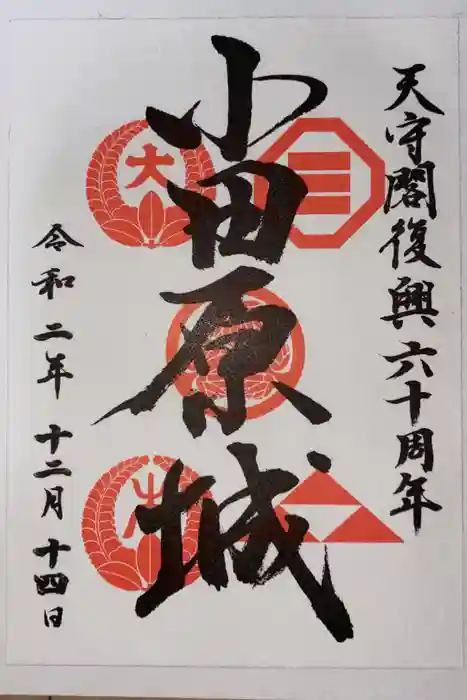 天守閣復興六十周年
小田原城
令和二年十二月十四日
大